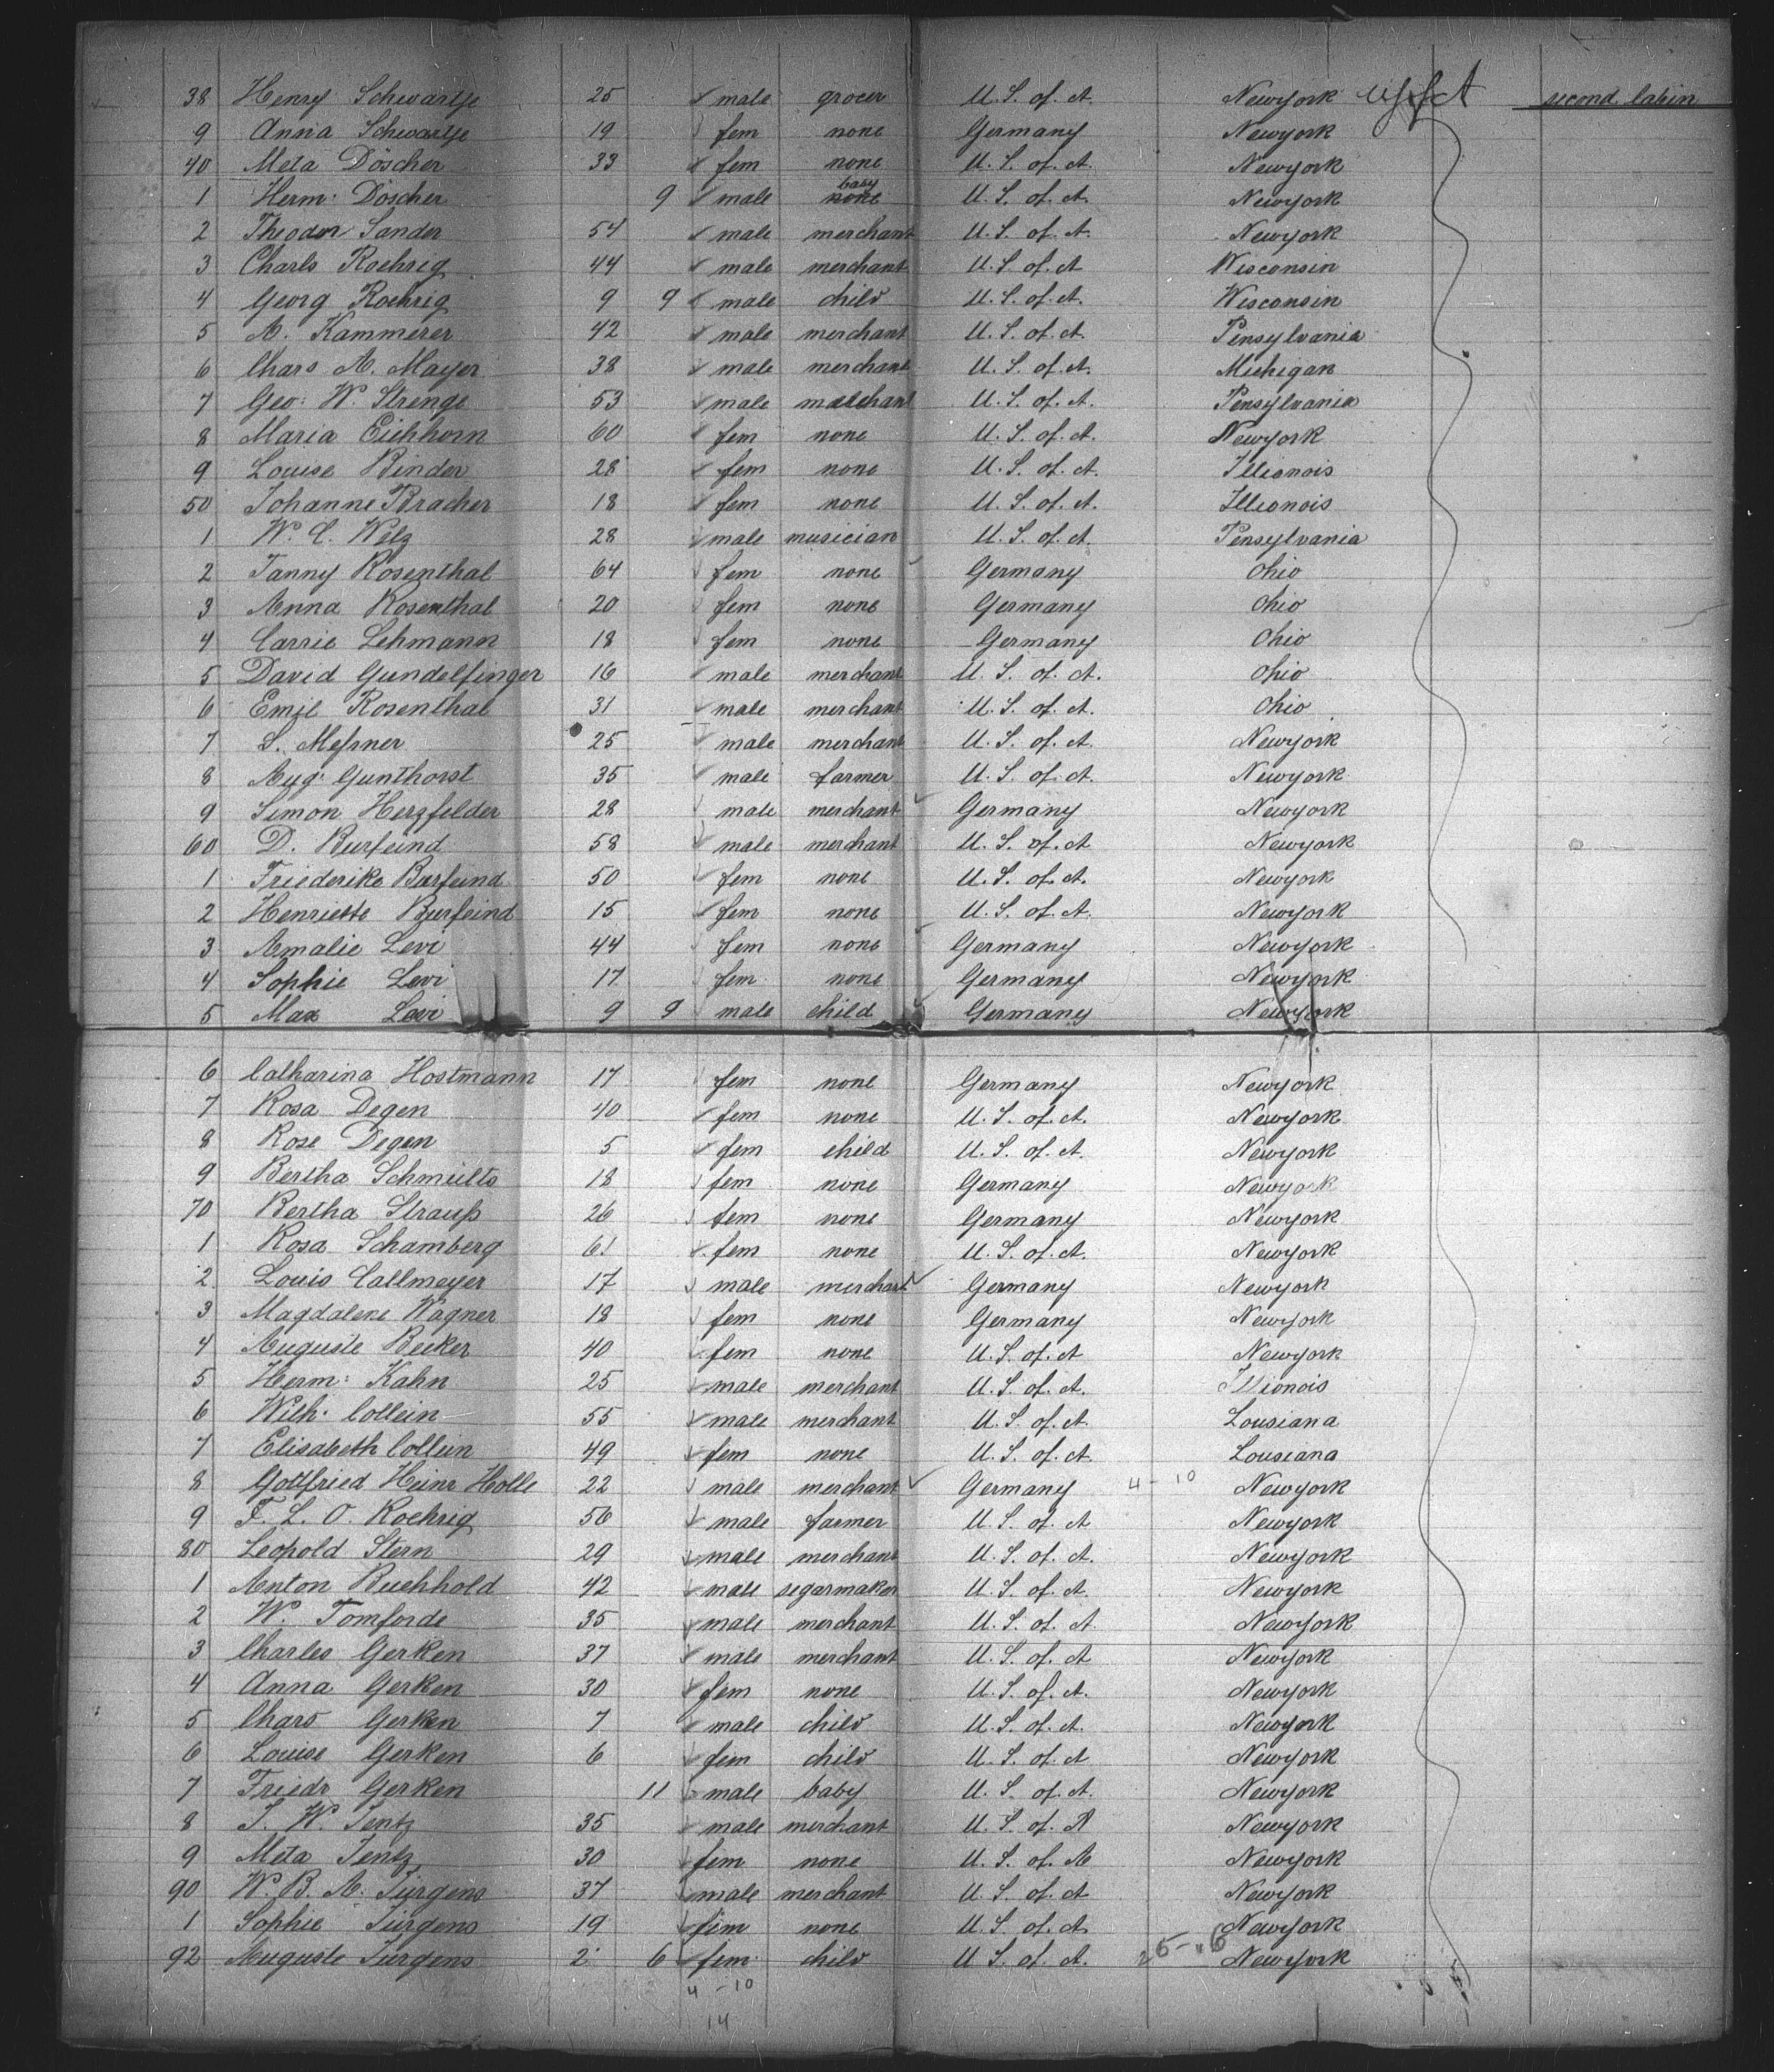 38 Henry Schwartje 25 male grocer U. S. of. A. Newyork U S of A second Cabin
9 Anna Schwartje 19 fem none Germany Newyork
40 Meta Döscher 33 fem none U. S. of. A. Newyork
1 Herm: Döscher 9 male none baby U. S. of. A. Newyork
2 Theodor Sander 54 male merchant U. S. of. A. Newyork
3 Charls Roehrig 44 male merchant U. S. of. A Wisconsin
4 Georg Roehrig 9 9 male child U. S. of. A. Wisconsin
5 A. Kammerer 42 male merchant U. S. of. A. Pensylvania
6 Chars A. Mayer 38 male merchant U. S. of. A. Michigan
7 Geo: W. Strenge 53 male merchant U. S. of. A. Pensylvania
8 Maria Eichhorn 60 fem none U. S. of. A. Newyork
9 Louise Binder 28 fem none U. S. of. A. Illionois
50 Johanne Bracher 18 fem none U. S. of. A. Illionois
1 W. C. Welz 28 male musician U. S. of. A. Pensylvania
2 Fanny Rosenthal 64 fem none Germany Ohio
3 Anna Rosenthal 20 fem none Germany Ohio
4 Carrie Lehmann 18 fem none Germany Ohio
5 David Gundelfinger 16 male merchant U. S. of. A. Ohio
6 Emil Rosenthal 31 male merchant U. S. of. A. Ohio
7 S. Meßner 25 male merchant U. S. of. A. Newyork
8 Aug: Gunthorst 35 male farmer U. S. of. A. Newyork
9 Simon Herzfelder 28 male merchant Germany Newyork
60 D. Burfeind 58 male merchant U. S. of. A Newyork
1 Friederike Burfeind 50 fem none U. S. of. A. Newyork
2 Henriette Burfeind 15 fem none U. S. of. A. Newyork
3 Amalie Levi 44 fem none Germany Newyork
4 Sophie Levi 17 fem none Germany Newyork
5 Max Levi 9 9 male child Germany Newyork
6 Catharina Hostmann 17 fem none Germany Newyork
7 Rosa Degen 40 fem none U. S. of. A. Newyork
8 Rose Degen 5 fem child U. S. of. A. Newyork
9 Bertha Schmults 18 fem none Germany Newyork
70 Bertha Strauß 26 fem none Germany Newyork
1 Rosa Schamberg 61 fem none U. S. of. A. Newyork
2 Louis Callmeyer 17 male merchant Germany Newyork
3 Magdalene Wagner 18 fem none Germany Newyork
4 Auguste Becker 40 fem none U. S. of. A Newyork
5 Herm: Kahn 25 male merchant U. S. of. A. Illionois
6 Wilh. Collein 55 male merchant U. S. of. A. Lousiana
7 Elisabeth Collein 49 fem none U. S. of. A Lousiana
8 Gottfried Heinr Holle 22 male merchant Germany 4 - 10 Newyork
9 F. L. O. Roehrig 56 male farmer U. S. of. A Newyork
80 Leopold Stern 29 male merchant U. S. of. A. Newyork
1 Anton Buchhold 42 male segarmaker U. S. of. A Newyork
2 W. Tomforde 35 male merchant U. S. of. A. Newyork
3 Charles Gerken 37 male merchant U. S. of. A Newyork
4 Anna Gerken 30 fem none U. S. of. A. Newyork
5 Chars Gerken 7 male child U. S. of. A. Newyork
6 Louise Gerken 6 fem child U. S. of. A Newyork
7 Friedr Gerken 11 male baby U. S. of. A. Newyork
8 J. W. Jentz 35 male merchant U. S. of. A Newyork
9 Meta Jentz 30 fem none U. S. of. A Newyork
90 W. B. A. Jürgens 37 male merchant U. S. of. A Newyork
1 Sophie Jürgens 19 fem none U. S. of. A Newyork
92 Auguste Jürgens 2 6 fem child U. S. of. A. Newyork
4 - 10
14